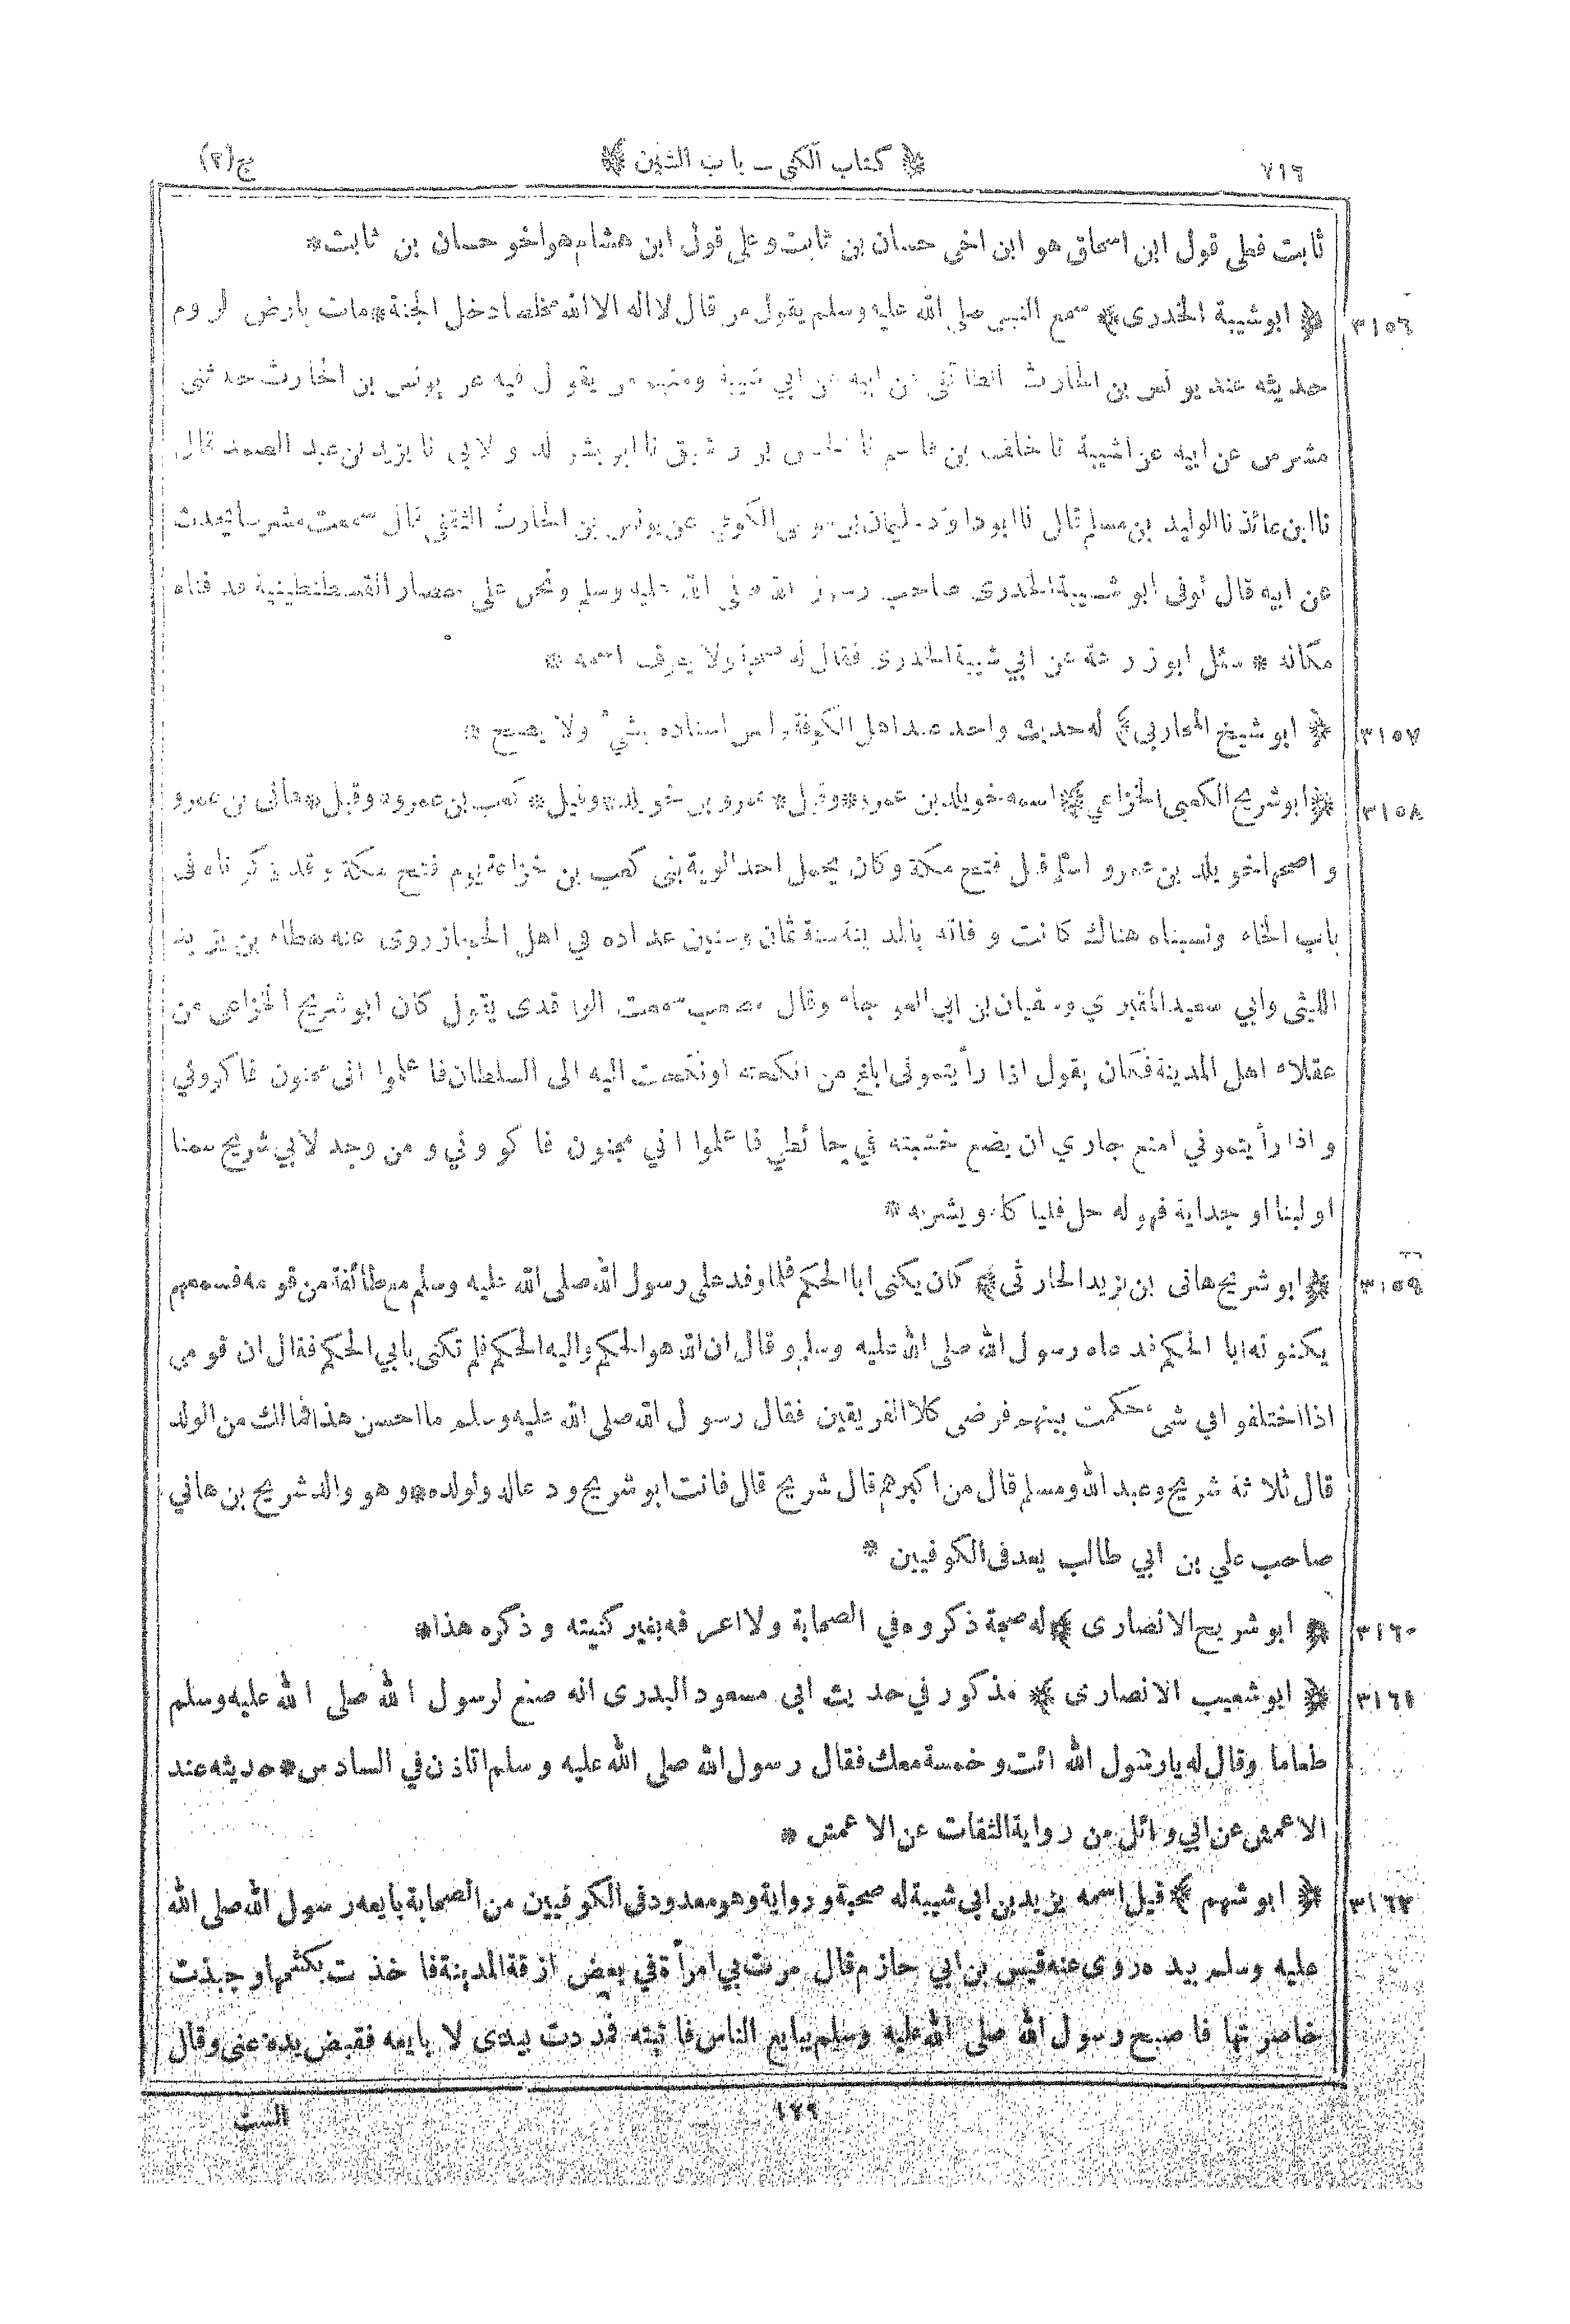 ٧١٦ ﴿ كتاب الكنى ــ باب الشين ﴾ ج(٢)
ثابت فعلى قول ابن اسحاق هو ابن اخى حسان بن ثابت وعلى قول ابن هشام هو اخو حسان بن ثابت *
٣١٥٦ ﴿ ابو شيبة الخدرى ﴾ سمع النبى صلى الله عليه وسلم يقول من قال لا اله الا الله مخلصا دخل الجنة * مات بارض الروم
حديثه عند يونس بن الحارث الطائفى عن ابيه عن ابي شيبة ومنهم من يقول فيه عن يونس بن الحارث حدثنى
مشرس عن ابيه عن ابى شيبة نا خلف بن قاسم نا بن رشيق نا ابو بشر الدولابي نا يزيد بن عبد الصمد قال
نا ابن عائذ نا الوليد بن مسلم قال نا ابو داود سليمان بن موسى الكوفي عن يونس بن الحارث الثقفى قال سمعت مشرسا يحدث
عن ابيه قال توفى ابو شيبة الخدرى صاحب رسول الله صلى الله عليه وسلم ونحن على حصار القسطنطينية فدفناه
مكانه * سئل ابو زرعة عن ابي شيبة الخدرى فقال له صحبة ولا يعرف اسمه *
٣١٥٧ ﴿ ابو شيخ المحاربي ﴾ له حديث واحد عند اهل الكوفة ليس اسناده بشيء ولا يصح *
٣١٥٨ ﴿ ابو شريح الكعبى الخزاعي ﴾ اسمه خويلد بن عمرو * وقيل * عمرو بن خويلد * وقيل * كعب بن عمرو * وقيل * هانى بن عمرو
واصحها خويلد بن عمرو اسلم قبل فتح مكة وكان يحمل احد الوية بنى كعب بن خزاعة يوم فتح مكة وقد ذكرناه فى
باب الخاء ونسبناه هناك كانت وفاته بالمدينة سنة ثمان وستين عداده في اهل الحجاز روى عنه عطاء بن يزيد
الليثى وابي سعيد المقبري وسفيان بن ابي العوجاء وقال مصعب سمعت الواقدى يقول كان ابو شريح الخزاعى من
عقلاء اهل المدينة فكان يقول اذا رأيتموني ابلغ من انكحته او نكحت اليه الى السلطان فاعلموا انى مجنون فاكووني
واذا رأيتموني امنع جاري ان يضع خشبته في حائطي فاعلموا اني مجنون فاكووني ومن وجد لابي شريح سمنا
او لبنا او جداية فهو له حل فلياكله ويشربه *
٣١٥٩ ﴿ ابو شريح هانى بن يزيد الحارثى ﴾ كان يكنى ابا الحكم فلما وفد على رسول الله صلى الله عليه وسلم مع طائفة من قومه فسمعهم
يكنونه ابا الحكم فدعاه رسول الله صلى الله عليه وسلم وقال ان الله هو الحكم واليه الحكم فلم تكنى بابي الحكم فقال ان قومى
اذا اختلفوا في شىء حكمت بينهم فرضى كلا الفريقين فقال رسول الله صلى الله عليه وسلم ما احسن هذا فمالك من الولد
قال ثلاثة شريح وعبد الله ومسلم قال من اكبرهم قال شريح قال فانت ابو شريح ودعاله ولولده * وهو والد شريح بن هاني
صاحب علي بن ابي طالب يعد فى الكوفيين *
٣١٦٠ ﴿ ابو شريح الانصارى ﴾ له صحبة ذكروه في الصحابة ولا اعرفه بغير كنيته وذكره هذا *
٣١٦١ ﴿ ابو شعيب الانصارى ﴾ مذكور في حديث ابى مسعود البدرى انه صنع لرسول الله صلى الله عليه وسلم
طعاما وقال له يا رسول الله ائت وخمسة معك فقال رسول الله صلى الله عليه وسلم اتاذن في السادس * حديثه عند
الاعمش عن ابي وائل من رواية الثقات عن الاعمش *
٣١٦٢ ﴿ ابو شهم ﴾ قيل اسمه يزيد بن ابي شيبة له صحبة ورواية وهو معدود فى الكوفيين من الصحابة بايعه رسول الله صلى الله
عليه وسلم بيده روى عنه قيس بن ابي حازم قال مرت بي امرأة في بعض ازقة المدينة فاخذت بكشحها وجبذت
خاصرتها فاصبح رسول الله صلى الله عليه وسلم يبايع الناس فاتيته فمددت بيدى لا بايعه فقبض يده عنى وقال
١٧٩ الست